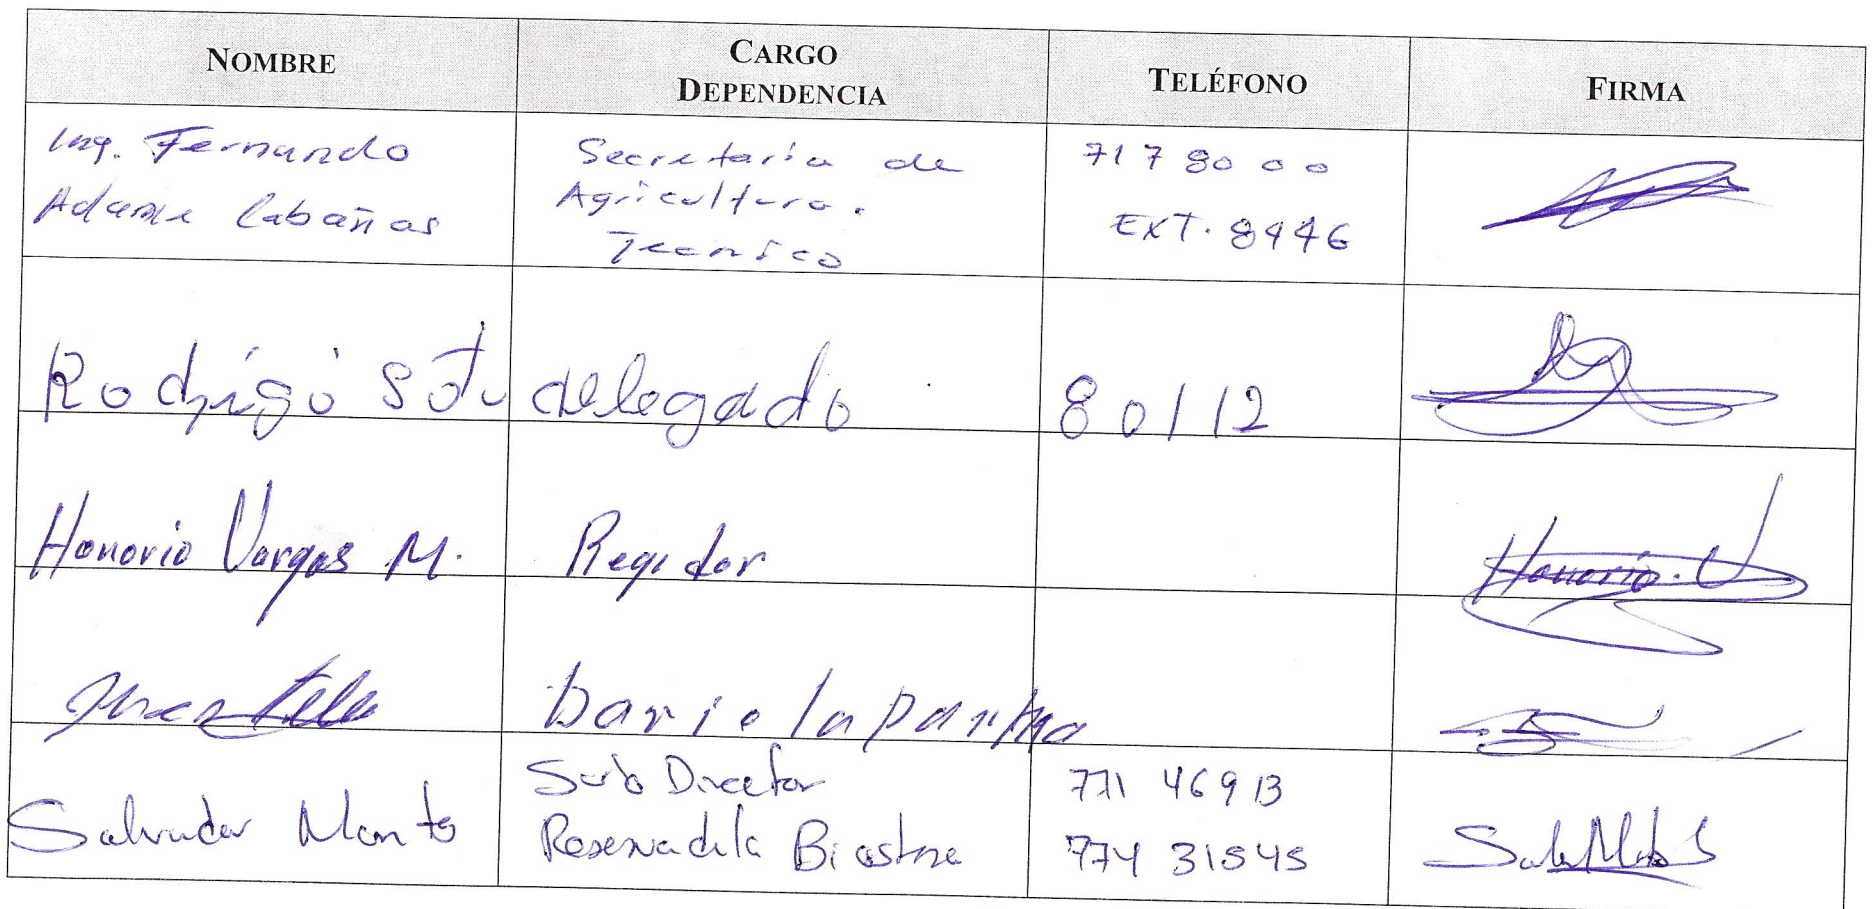 NOMBRE
CARGO
DEPENDENCIA
TELÉFONO
FIRMA
Ing. Fernando
Adame Cabañas
Secretaria de
Agricultura.
Tecnico
717 80 0 0
EXT. 8446
Rodrigo Soto
delegado
80112
Honorio Vargas M.
Regidor
Honorio. V
Dario la parka
Salvador Monto
Sub Director
Reserva de la Biosfera
771 46913
774 31545